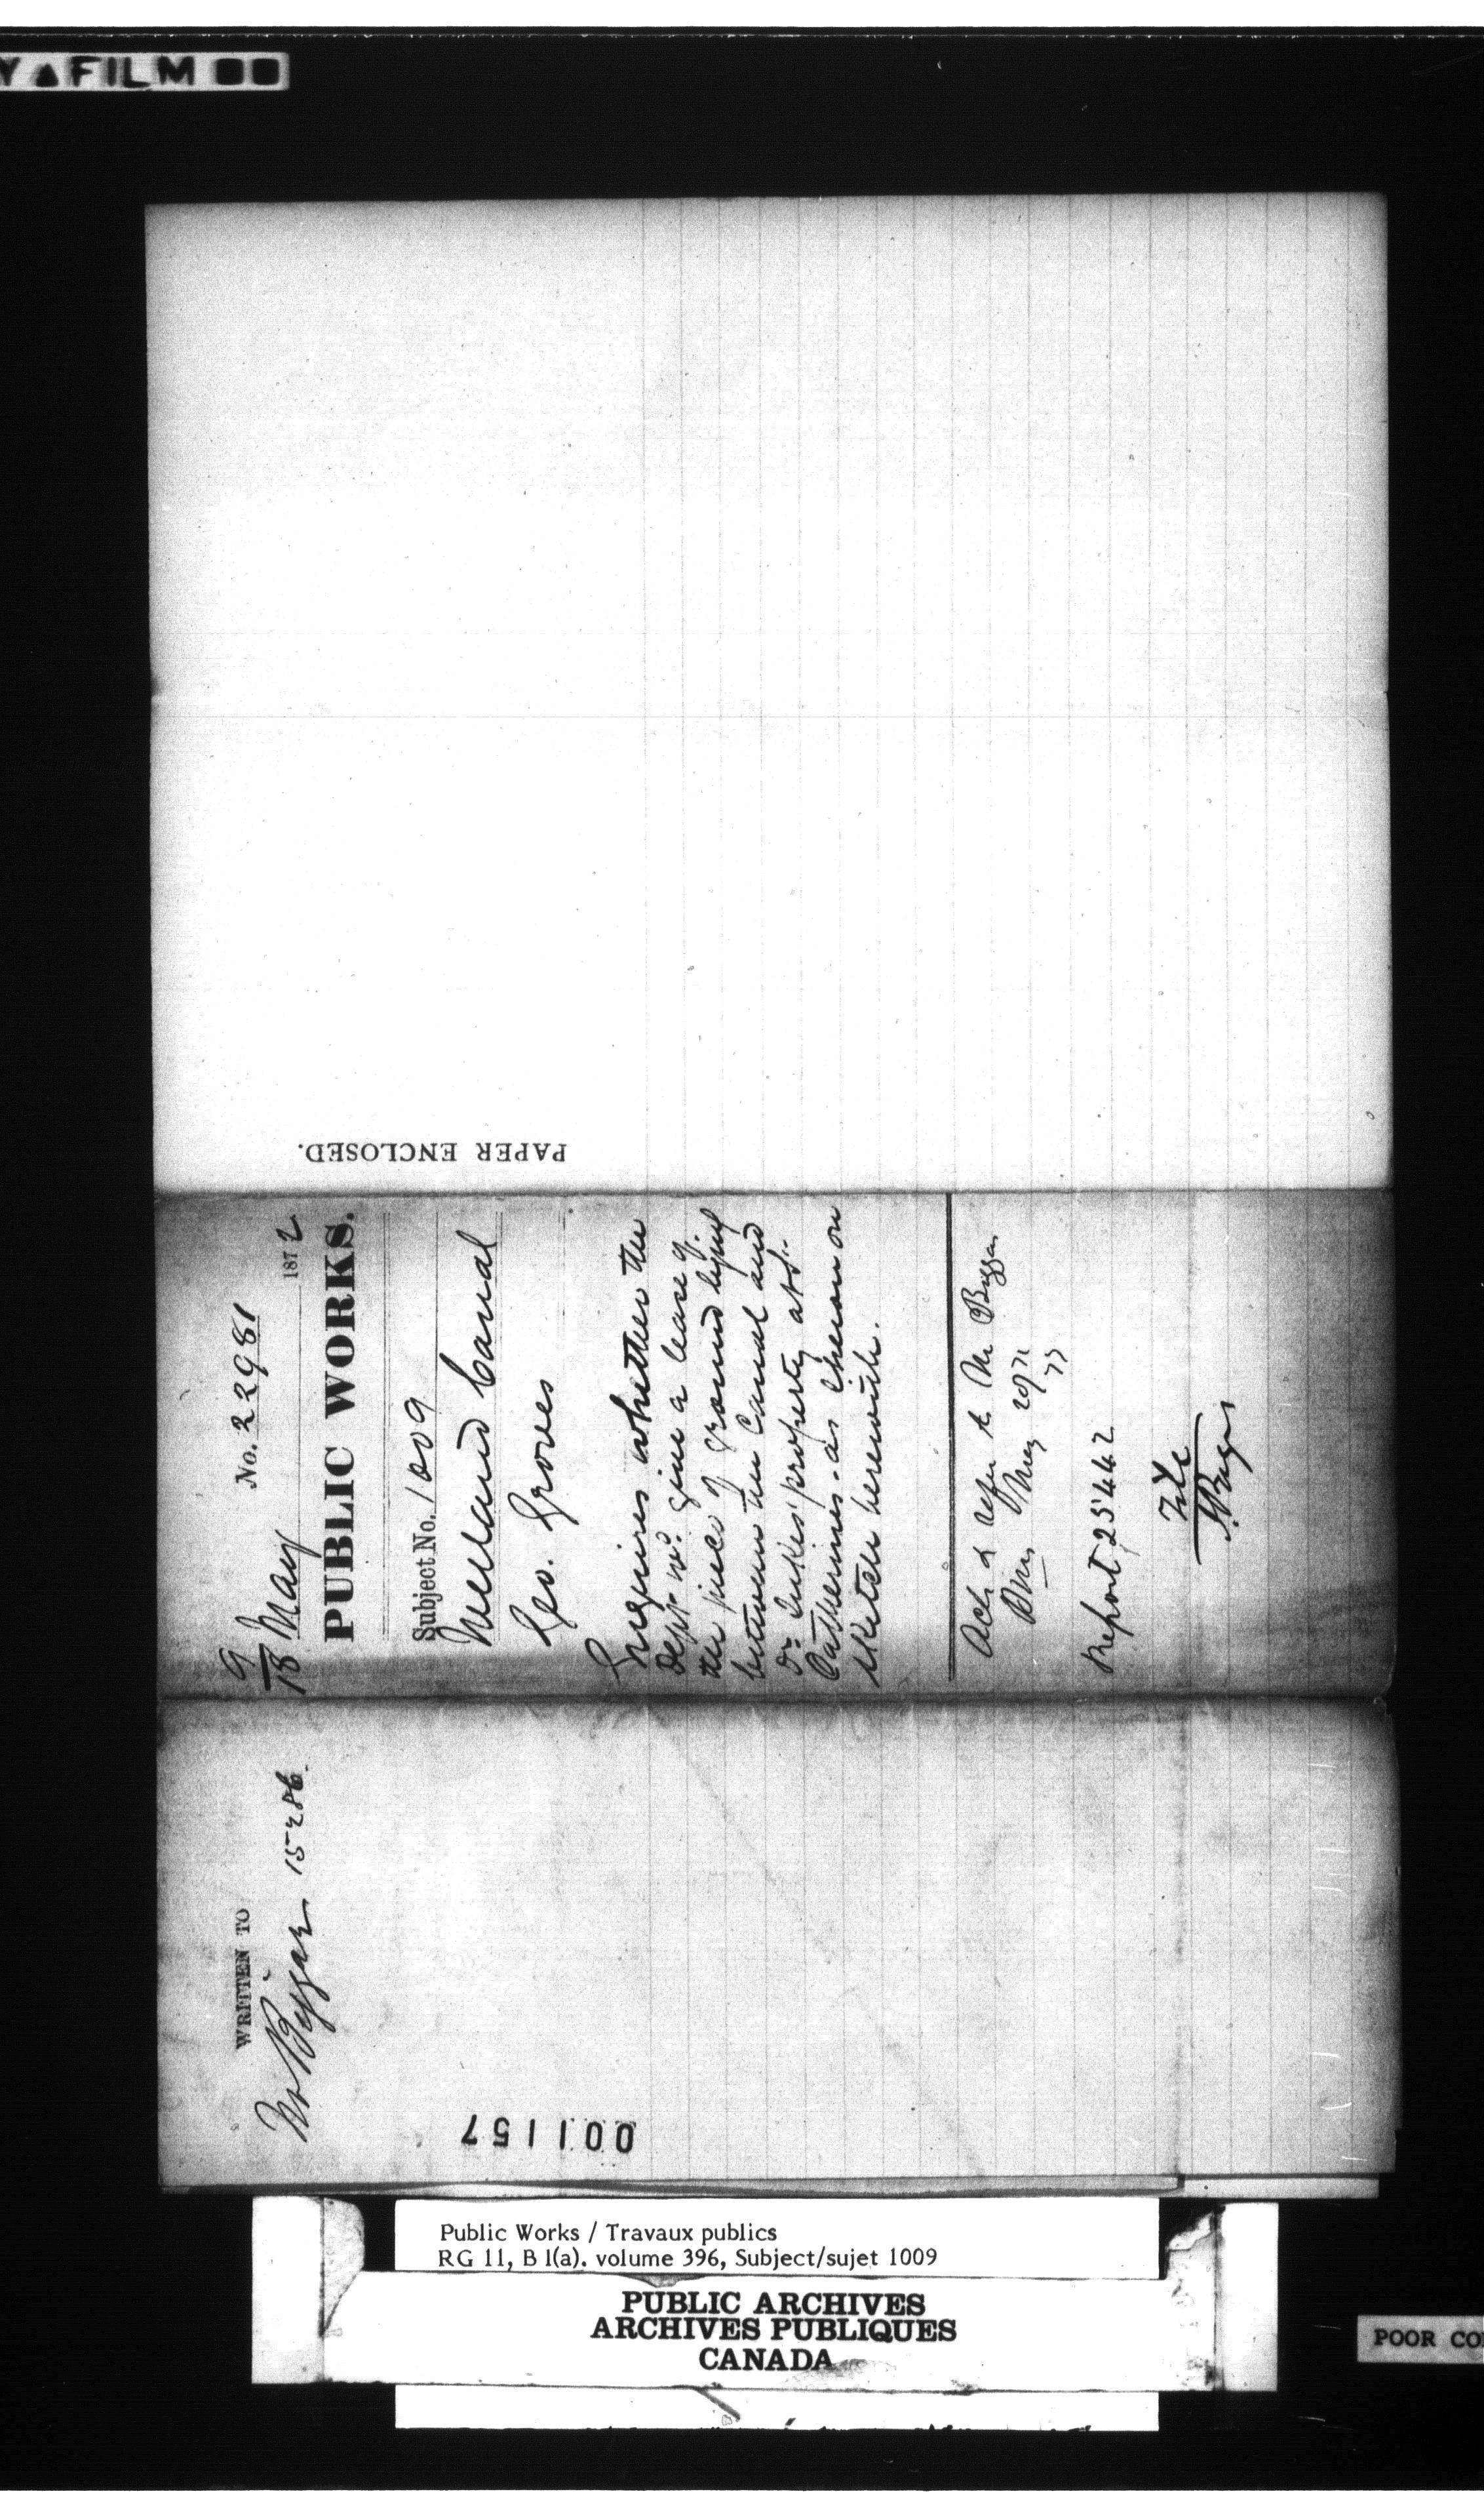 Y▲FILM
PAPER ENCLOSED.
No. 22981
9
18 May 1872
PUBLIC WORKS.
Subject No. 1009
Welland Canal
Geo. Groves
Inquires whether the
Dept wd. give a lease of
the piece of ground lying
between the Canal and
Dr. property at St.
Catherines. as shewn on
sketch herewith.
Ack & refer to Mr Biggar
May 20
Report 25442
File
WRITTEN TO
Mr Biggar 15286.
001157
Public Works / Travaux publics
RG 11, B 1(a). volume 396, Subject/sujet 1009
PUBLIC ARCHIVES
ARCHIVES PUBLIQUES
CANADA
POOR CO